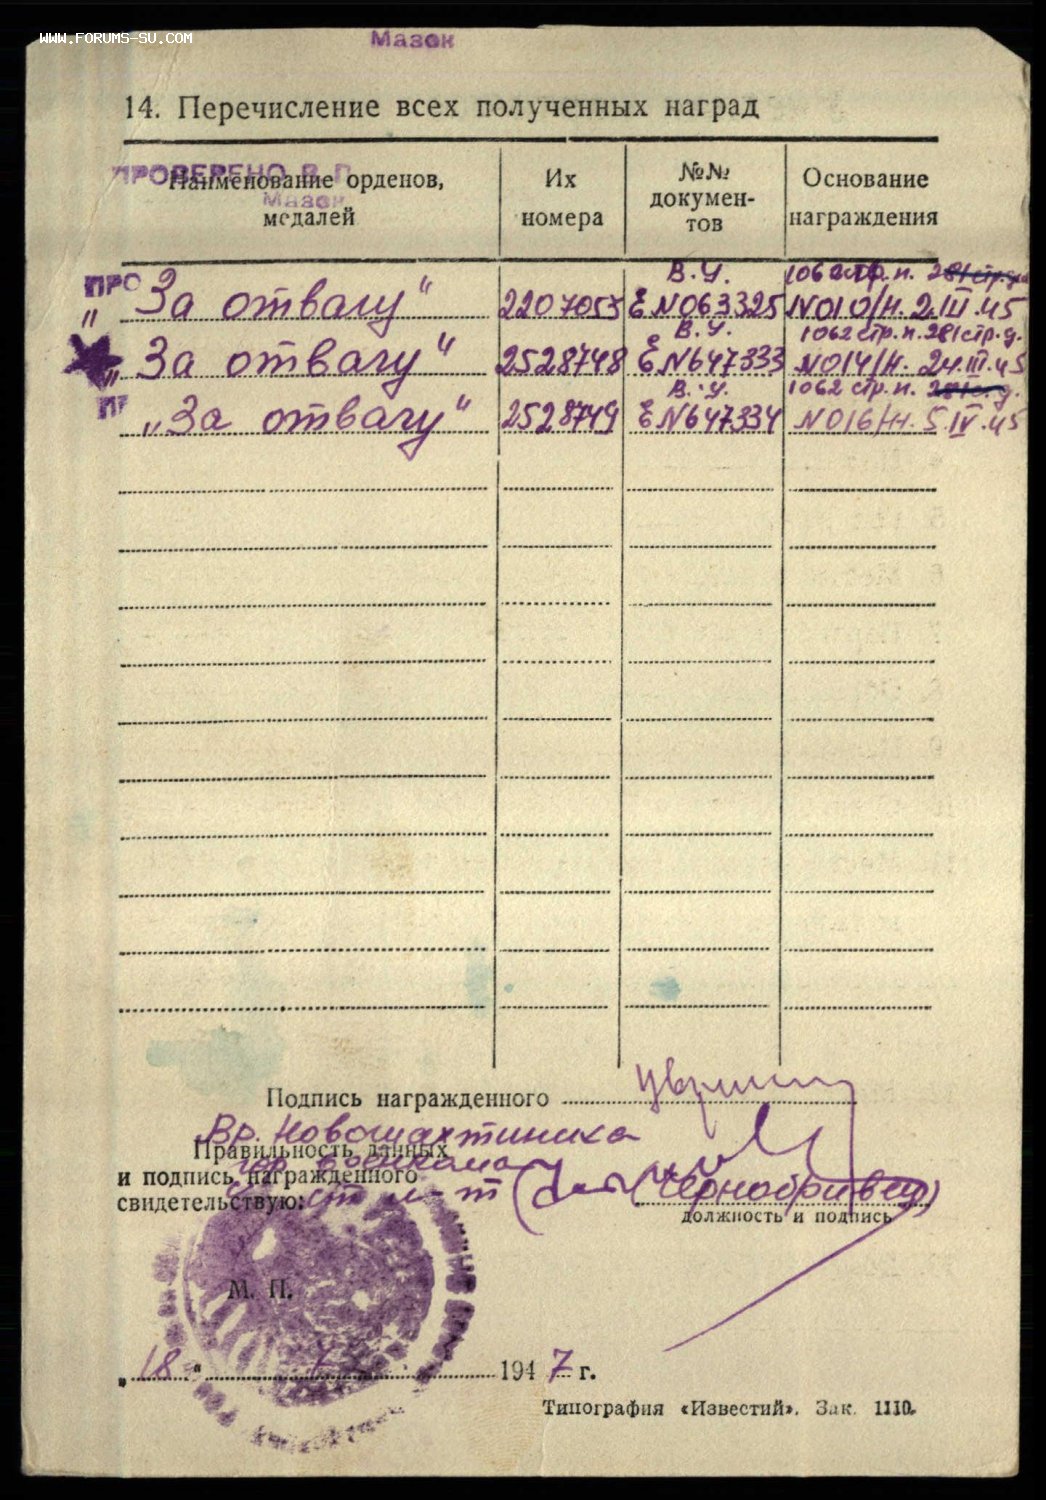 WWW.FORUMS-SU.COM
Мазок
14. Перечисление всех полученных наград
ПРОВЕРЕНО В Г
Мазок
Наименование орденов, медалей
Их номера
№№ докумен-тов
Основание награждения
ПРО
„За отвагу“ 2207053 В.У. Е N063325 N010/н. 2.III.45
„За отвагу“ 2528748 В.У. Е N647333 1062 стр.п. 281 стр.д. N014/н. 24.III.45
„За отвагу“ 2528749 В.У. Е N647334 1062 стр.п. N016/н. 5.IV.45
Подпись награжденного
Вр. Новошахтинска
Правильность данных
гор. военкома
и подпись награжденного
свидетельствую:
ст л-т (Чернобривец)
должность и подпись
М. П.
„18“ 1947 г.
Типография «Известий». Зак. 1110.